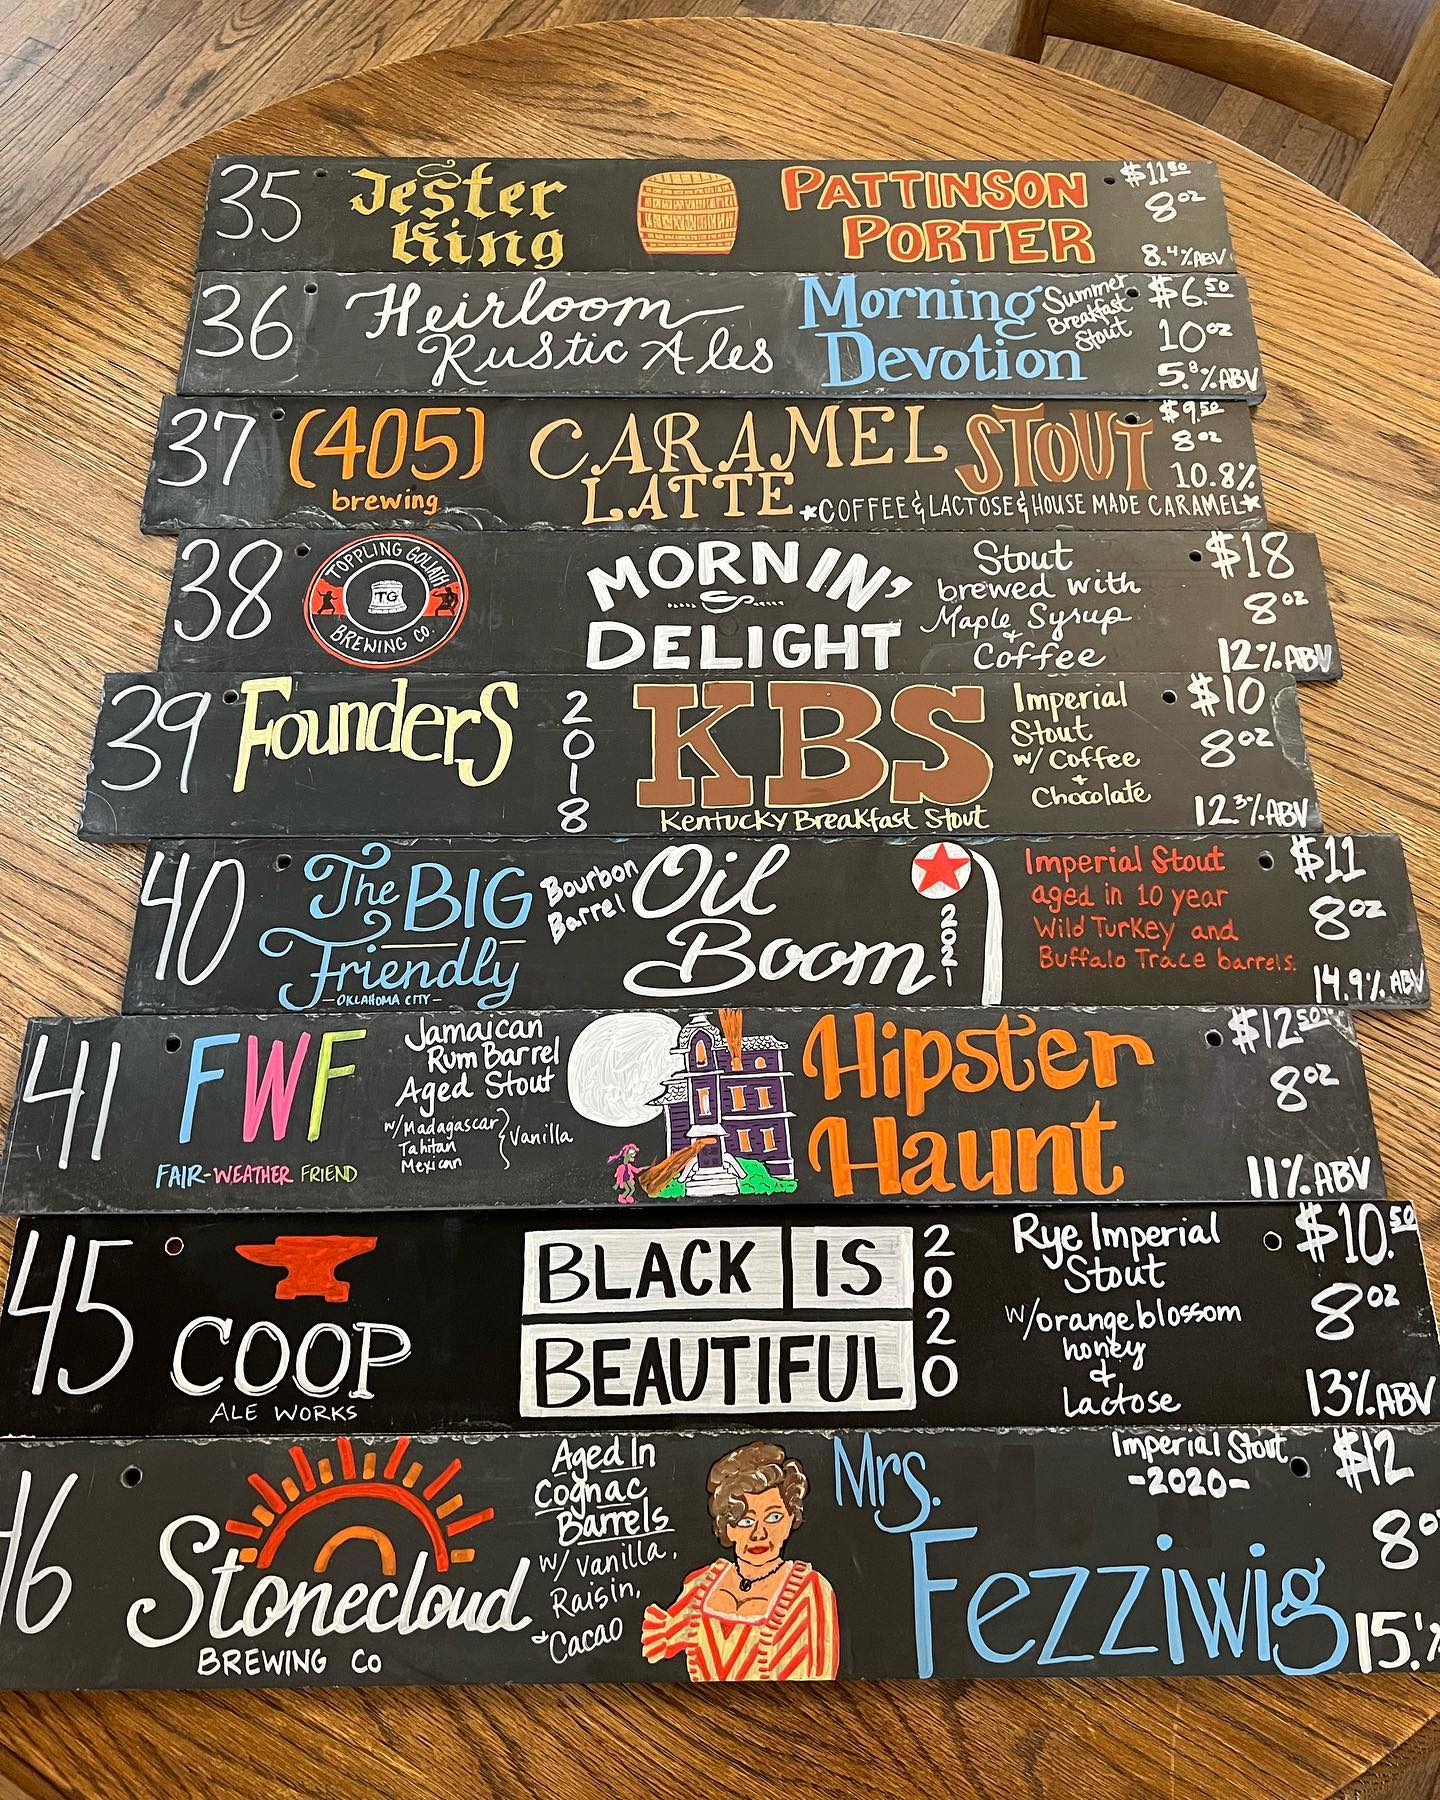 35
Jester
King
PATTINSON
PORTER
$11.50
8oz
8.4%ABV
36
Heirloom
Rustic Ales
Morning
Devotion
Summer
Breakfast
Stout
$6.50
10oz
5.8%ABV
37
(405)
brewing
CARAMEL
LATTE
STOUT
*COFFEE & LACTOSE & HOUSE MADE CARAMEL*
$9.50
8oz
10.8%
38
TOPPLING GOLIATH
TG
BREWING CO.
MORNIN'
DELIGHT
Stout
brewed with
Maple Syrup
+
Coffee
$18
8oz
12%ABV
39
Founders
2018
KBS
Kentucky Breakfast Stout
Imperial
Stout
w/ Coffee
+
Chocolate
$10
8oz
12.3%ABV
40
The BIG
Friendly
-OKLAHOMA CITY-
Bourbon
Barrel
Oil
Boom
2021
Imperial Stout
aged in 10 year
Wild Turkey and
Buffalo Trace barrels.
$11
8oz
14.9%ABV
41
FWF
FAIR-WEATHER FRIEND
Jamaican
Rum Barrel
Aged Stout
w/Madagascar
Tahitan
Mexican
} Vanilla
Hipster
Haunt
$12.50
8oz
11%ABV
45
COOP
ALE WORKS
BLACK IS
BEAUTIFUL
2020
Rye Imperial
Stout
w/orange blossom
honey
&
Lactose
$10.50
8oz
13%ABV
46
Stonecloud
BREWING Co
Aged In
Cognac
Barrels
w/ vanilla,
Raisin,
+Cacao
Mrs.
Fezziwig
Imperial Stout
-2020-
$12
8oz
15.1%